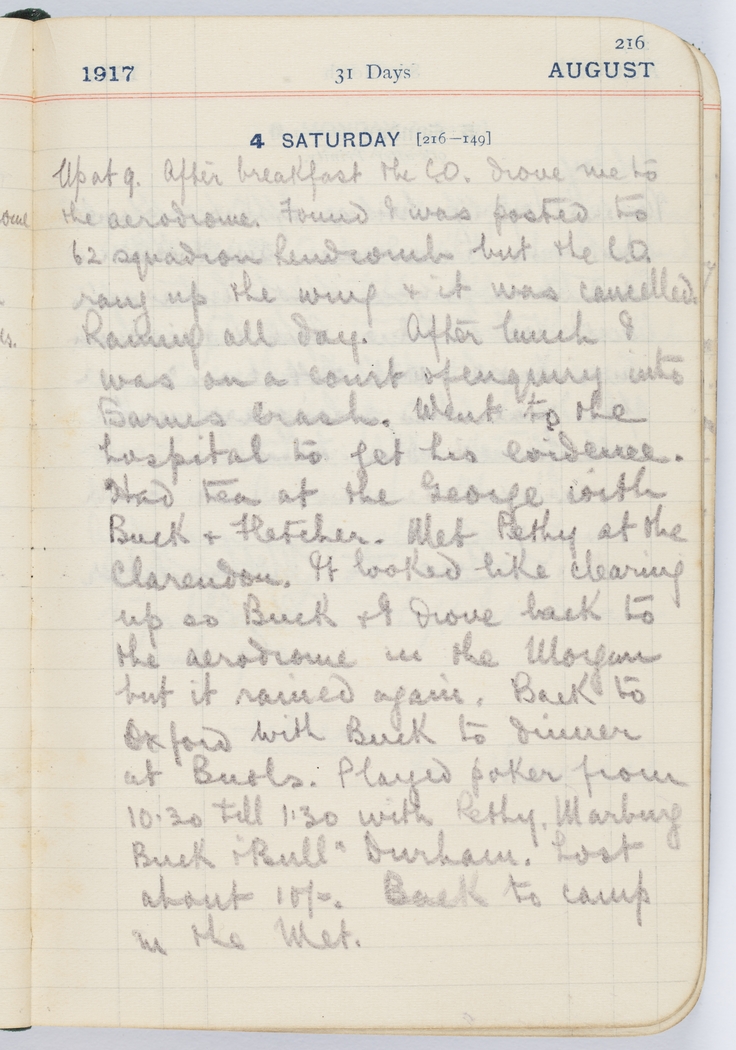 216
1917 31 Days AUGUST
4 SATURDAY [216–149]
Up at 9. After breakfast the C.O. drove me to
the aerodrome. Found I was posted to
62 squadron Rendcomb but the C.O.
rang up the wing & it was cancelled.
Raining all day. After lunch I
was on a court of enquiry into
Barnes crash. Went to the
hospital to get his evidence.
Had tea at the George with
Buck & Fletcher. Met Pethy at the
Clarendon. It looked like clearing
up so Buck & I drove back to
the aerodrome in the Morgan
but it rained again. Back to
Oxford with Buck to dinner
at Buols. Played poker from
10.30 till 1.30 with Pethy, Marburg
Buck "Bull" Durham. Lost
about 10/-. Back to camp
in the Met.